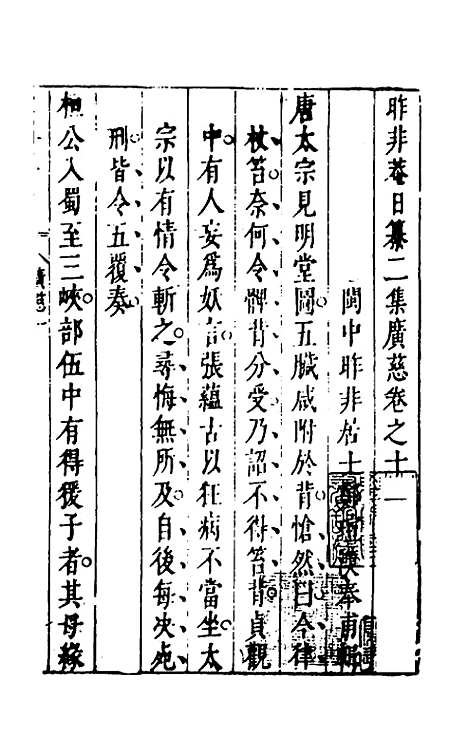 昨非菴日纂二集廣慈卷之十一
閩中昨非居士鄭瑄漢奉甫輯
唐太宗見明堂圖五臟咸附於背愴然曰今律
杖笞奈何令髀背分受乃詔不得笞背貞觀
中有人妄爲妖言張蘊古以狂病不當坐太
宗以有情令斬之尋悔無所及自後每決死
刑皆令五覆奏
桓公入蜀至三峽部伍中有得猨子者其母緣
廣慈一